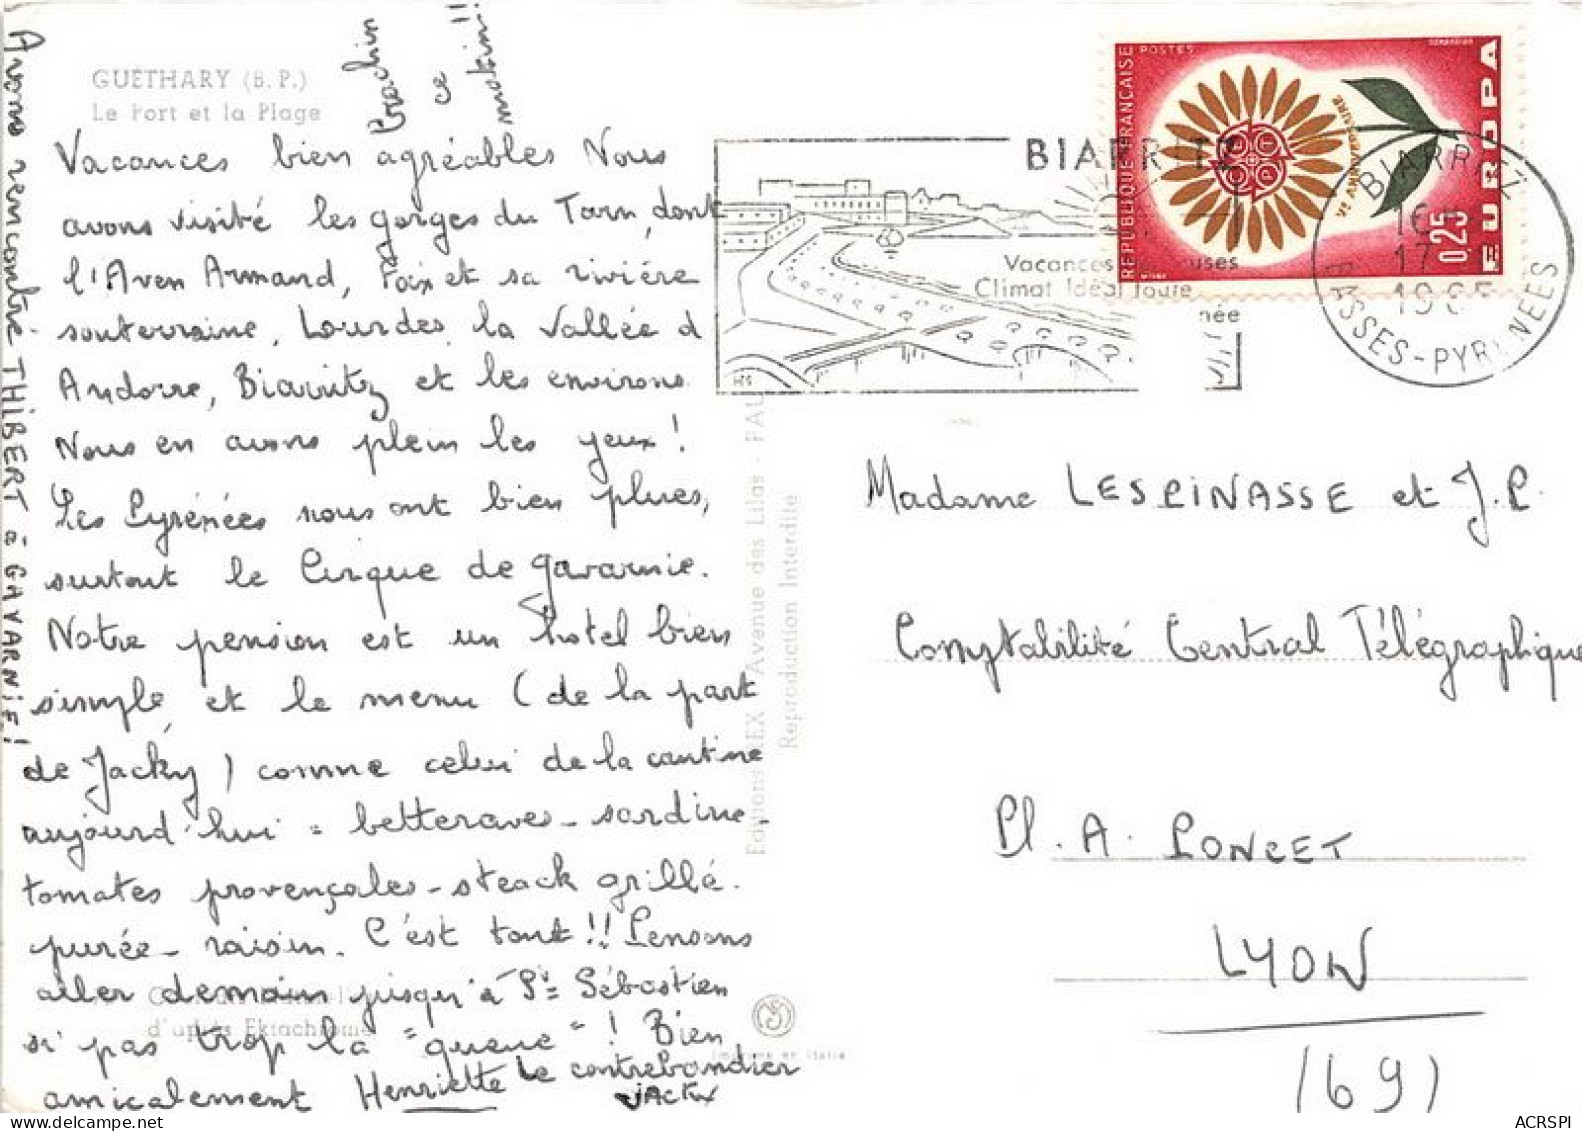 GUÉTHARY (B.P.)
Le Port et la Plage
Vacances bien agréables Nous
avons visité les gorges du Tarn, dont
l'Aven Armand, Foix et sa rivière
souterraine, Lourdes, la Vallée d
Andorre, Biarritz et les environs.
Nous en avons plein les yeux!
Les Pyrénées nous ont bien plues,
surtout le Cirque de Gavarnie.
Notre pension est un hotel bien
simple et le menu (de la part
de Jacky) comme celui de la cantine
aujourd'hui = betteraves - sardine,
tomates provençales - steack grillé.
purée - raisin. C'est tout!! Pensons
aller demain jusqu'à St= Sébastien
si pas trop la "queue"! Bien
amicalement Henriette Le contrebandier
JACKY
Avons rencontré THIBERT à GAVARNIE!
ce
matin!!
d'après Ektachrome
Editions REX Avenue des Lilas - PAU
Reproduction Interdite
Imprimé en Italie
BIARRITZ
Vacances
Climat Idéal toute
BIARRITZ
17
BASSES-PYRENEES
REPUBLIQUE FRANÇAISE
POSTES
Ve ANNIVERSAIRE
CEPT
0,25
EUROPA
Madame LESPINASSE et J.P.
Comptabilité Central Télégraphique
Pl. A. PONCET
LYON
(69)
ACRSPI